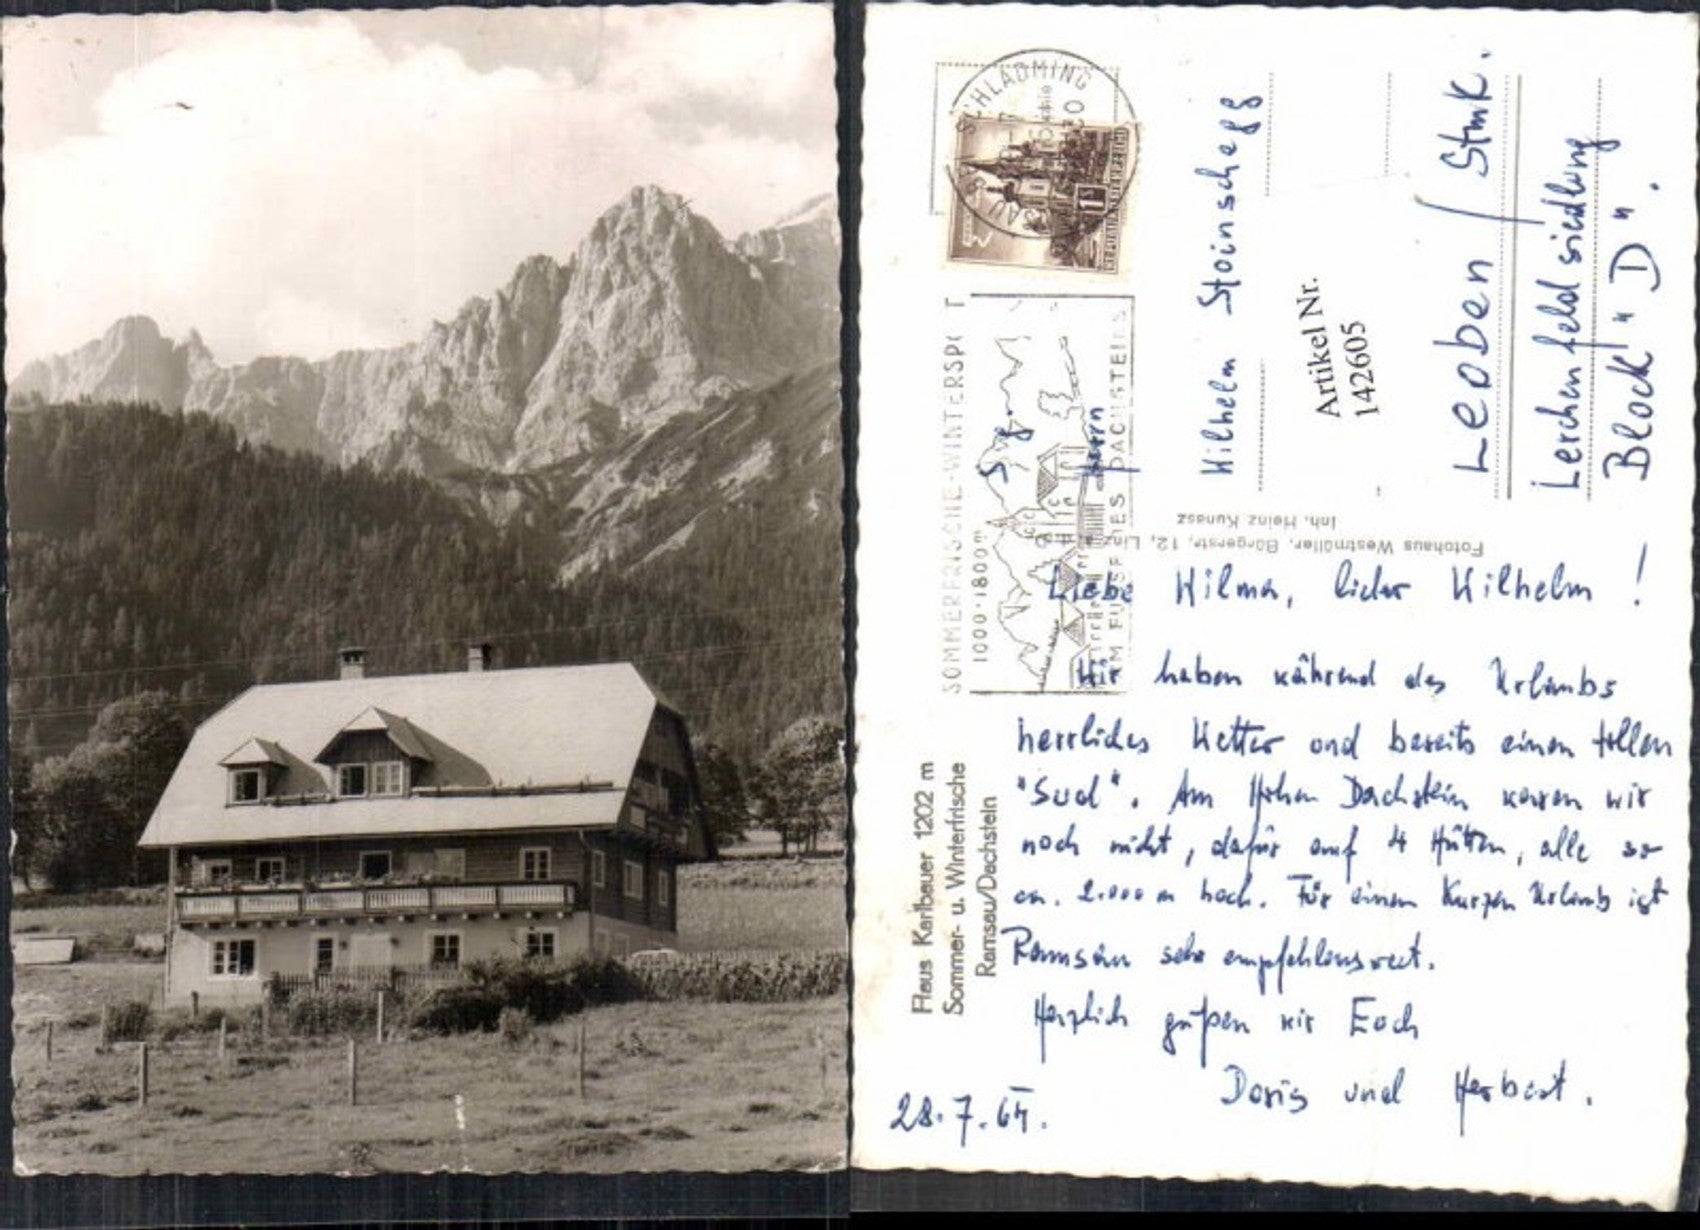 SCHLADMING
RAMSAU
1 S
REPUBLIK ÖSTERREICH
SOMMERFRISCHE-WINTERSPO T
1000-1800m
AM FUSSE DES DACHSTEINS
S. g.
Herrn
Wilhelm Stoinschegg
Leoben / Stmk.
Lerchenfeldsiedlung
Block "D".
Artikel Nr.
142605
Fotohaus Westmüller, Bürgerstr. 12, Linz a. d. D.
Inh. Heinz Kunasz
Haus Karlbauer 1202 m
Sommer- u. Winterfrische
Ramsau/Dachstein
Liebe Wilma, lieber Wilhelm !
Wir haben während des Urlaubs
herrliches Wetter und bereits einen tollen
"Sud". Am Hohen Dachstein waren wir
noch nicht, dafür auf 4 Hütten, alle so
ca. 2.000 m hoch. Für einen kurzen Urlaub ist
Ramsau sehr empfehlenswert.
Herzlich grüßen wir Euch
Doris und Herbert.
28.7.64.